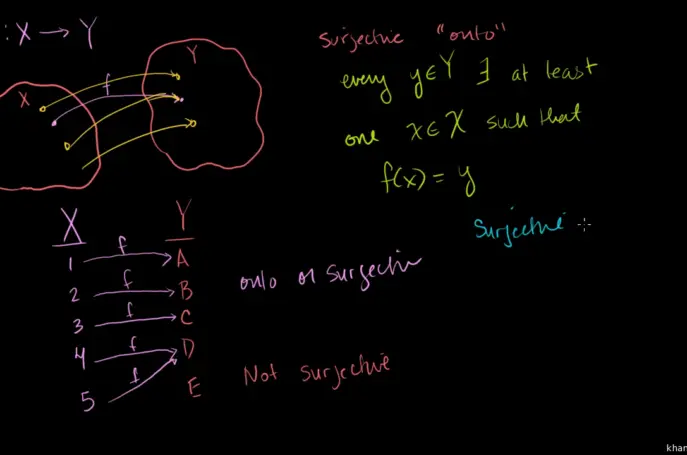 : X → Y
surjective "onto"
every y∈Y ∃ at least
one x∈X such that
f(x) = y
Surjective
X
Y
f
X Y
1 f A
2 f B
3 f C
4 f D
5 f E
onto or surjective
Not surjective
khan